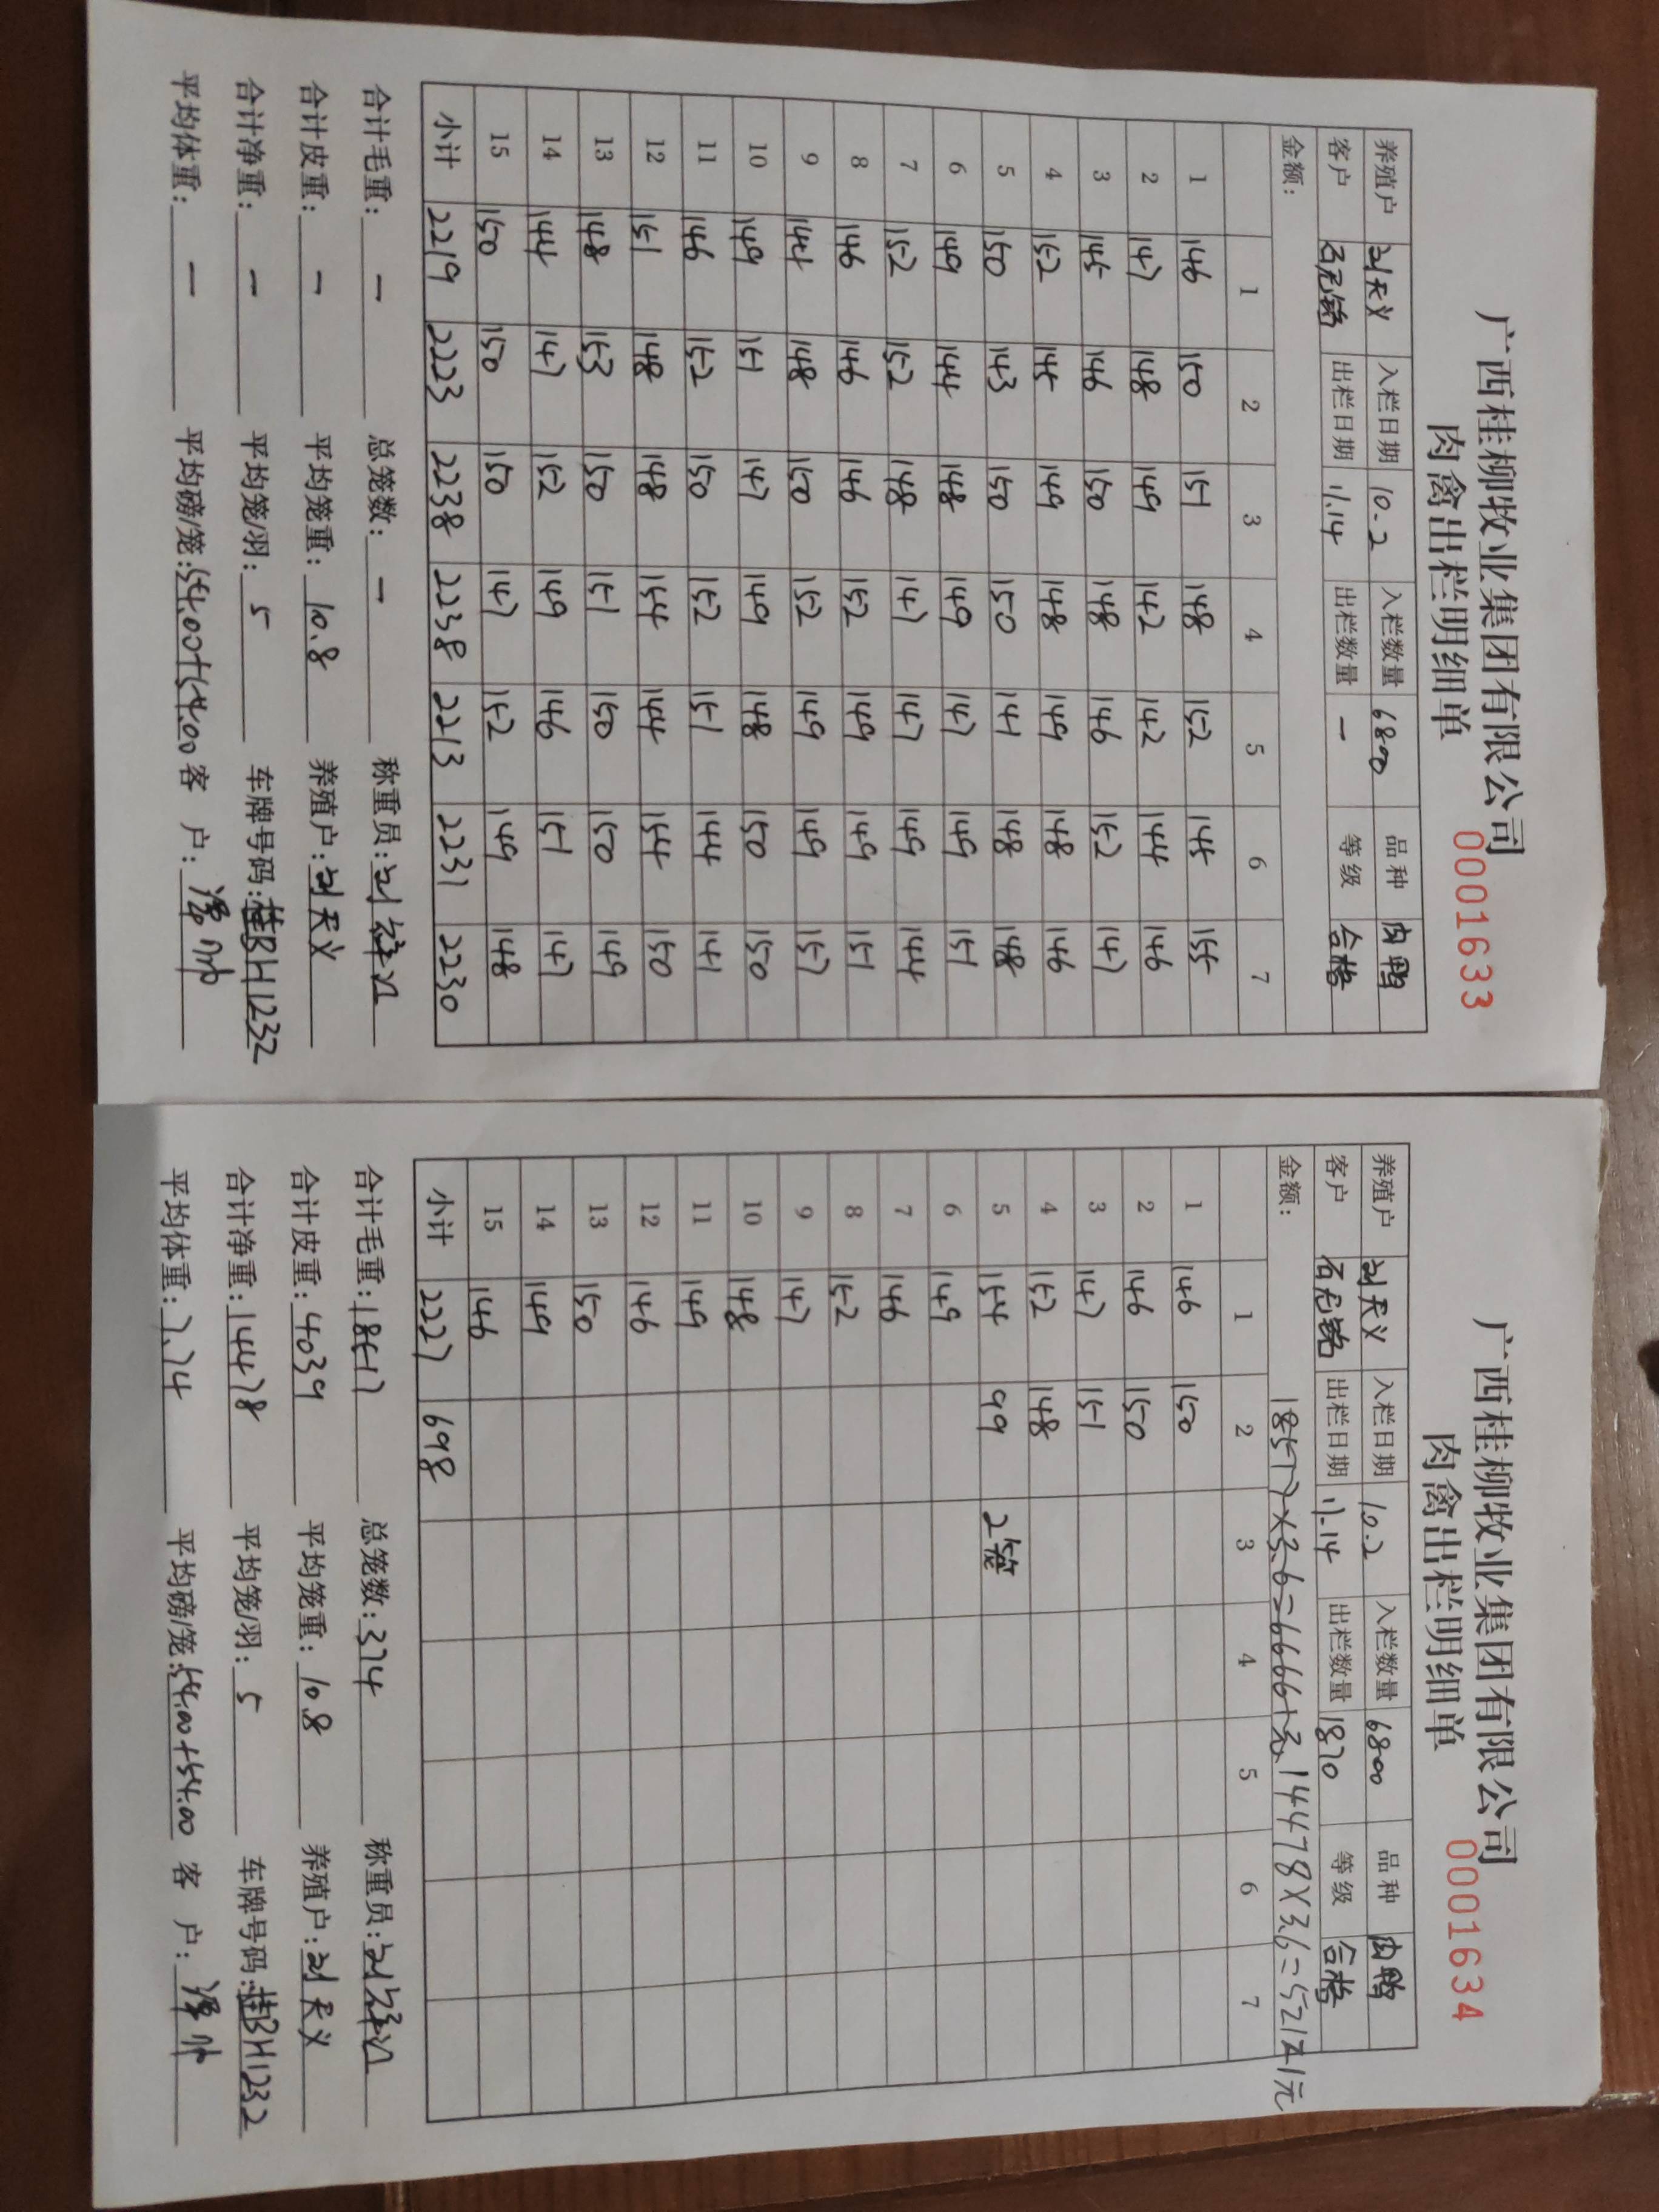 广西桂柳牧业集团有限公司
肉禽出栏明细单
0001633
养殖户 刘天义 入栏日期 10.2 入栏数量 6800 品种 肉鸭
客户 出栏日期 11.14 出栏数量 — 等级 合格
金额:
1 2 3 4 5 6 7
1 146 150 151 148 152 145 155
2 147 148 149 142 142 144 146
3 145 146 150 148 146 152 147
4 152 145 149 148 149 148 146
5 150 143 150 150 141 148 148
6 149 144 148 149 147 149 151
7 152 152 148 147 147 149 144
8 146 146 146 152 149 149 151
9 144 148 150 152 149 149 157
10 149 151 147 149 148 150 150
11 146 152 150 152 151 144 141
12 151 148 148 154 144 154 150
13 148 153 150 151 150 150 149
14 144 147 152 149 146 151 147
15 150 150 150 147 152 149 148
小计 2219 2223 2238 2238 2213 2231 2230
合计毛重: — 总笼数: — 称重员:
合计皮重: — 平均笼重: 10.8 养殖户: 刘天义
合计净重: — 平均笼/羽: 5 车牌号码: 桂BH1232
平均体重: — 平均磅/笼: 54.00+54.00 客 户:
广西桂柳牧业集团有限公司
肉禽出栏明细单
0001634
养殖户 刘天义 入栏日期 10.2 入栏数量 6800 品种 肉鸭
客户 出栏日期 11.14 出栏数量 1870 等级 合格
金额: 18517×3.6=66661元. 14478×3.6=52121元
1 2 3 4 5 6 7
1 146 150
2 146 150
3 147 151
4 152 148
5 154 99 2笼
6 149
7 146
8 152
9 147
10 148
11 149
12 146
13 150
14 149
15 146
小计 2227 698
合计毛重: 18517 总笼数: 374 称重员:
合计皮重: 4039 平均笼重: 10.8 养殖户: 刘天义
合计净重: 14478 平均笼/羽: 5 车牌号码: 桂BH1232
平均体重: 7.74 平均磅/笼: 54.00+54.00 客 户: